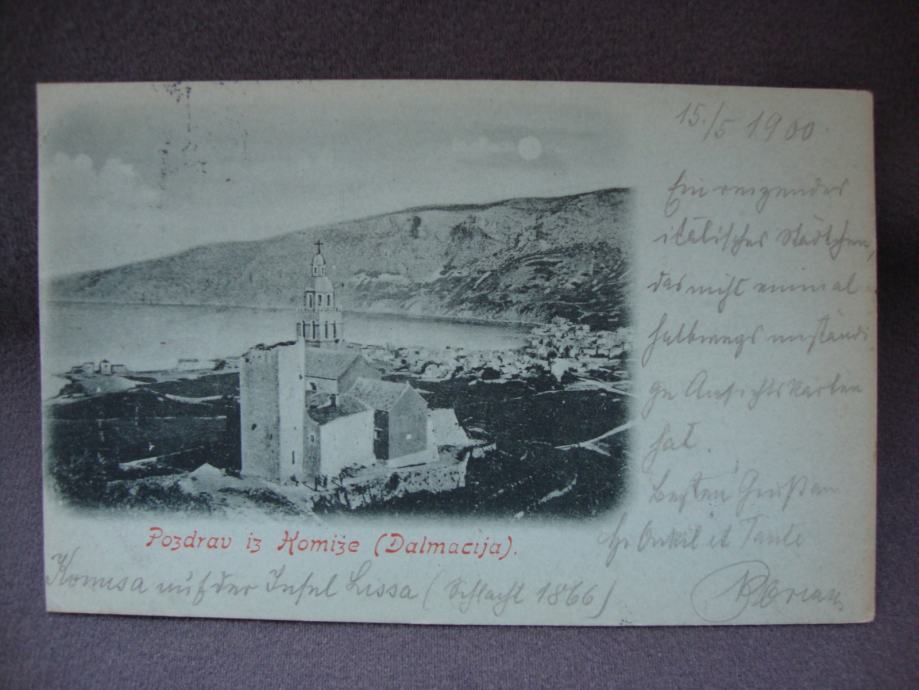 15./5 1900.
Ein reizendes
italisches Städtchen,
das nicht einmal
halbwegs anständi
ge Ansichtskarten
hat.
Besten Gruß an
Onkel et Tante
Pozdrav iz Komiže (Dalmacija).
Komisa auf der Insel Lissa (Schlacht 1866)